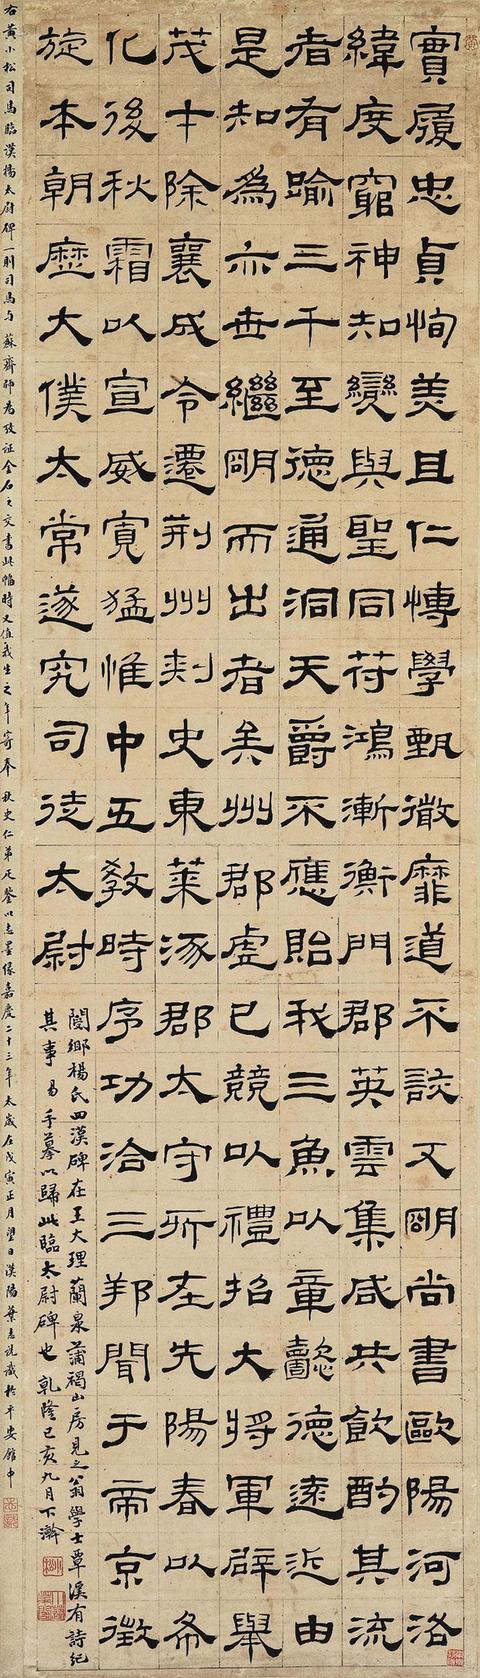 實履忠貞恂美且仁博學甄微靡道不該又朙尚書歐陽河洛
緯度窮神知變與聖同符鴻漸衡門郡英雲集咸共飲酌其流
者有踰三千至德通洞天爵不應貽我三魚以章懿德遠近由
是知為亦世繼朙而出者矣州郡虛已競以禮招大將軍辟舉
茂才除襄成令遷荊州刺史東萊涿郡太守所在先陽春以布
化後秋霜以宣威寬猛惟中五教時序功洽三邦聞于帝京徵
旋本朝歷大僕太常遂究司徒太尉
閿鄉楊氏四漢碑在王大理蘭泉蒲褐山房見之翁學士覃溪有詩紀
其事易手摹以歸此臨太尉碑也乾隆己亥九月下澣
右黃小松司馬臨漢楊太尉碑一則司馬與蘇齋師為攷証金石之交書此幅時又值我生之年寄奉秋史仁弟足鑒以志墨緣嘉慶二十三年太歲在戊寅正月望日漢陽葉志詵識於平安館中